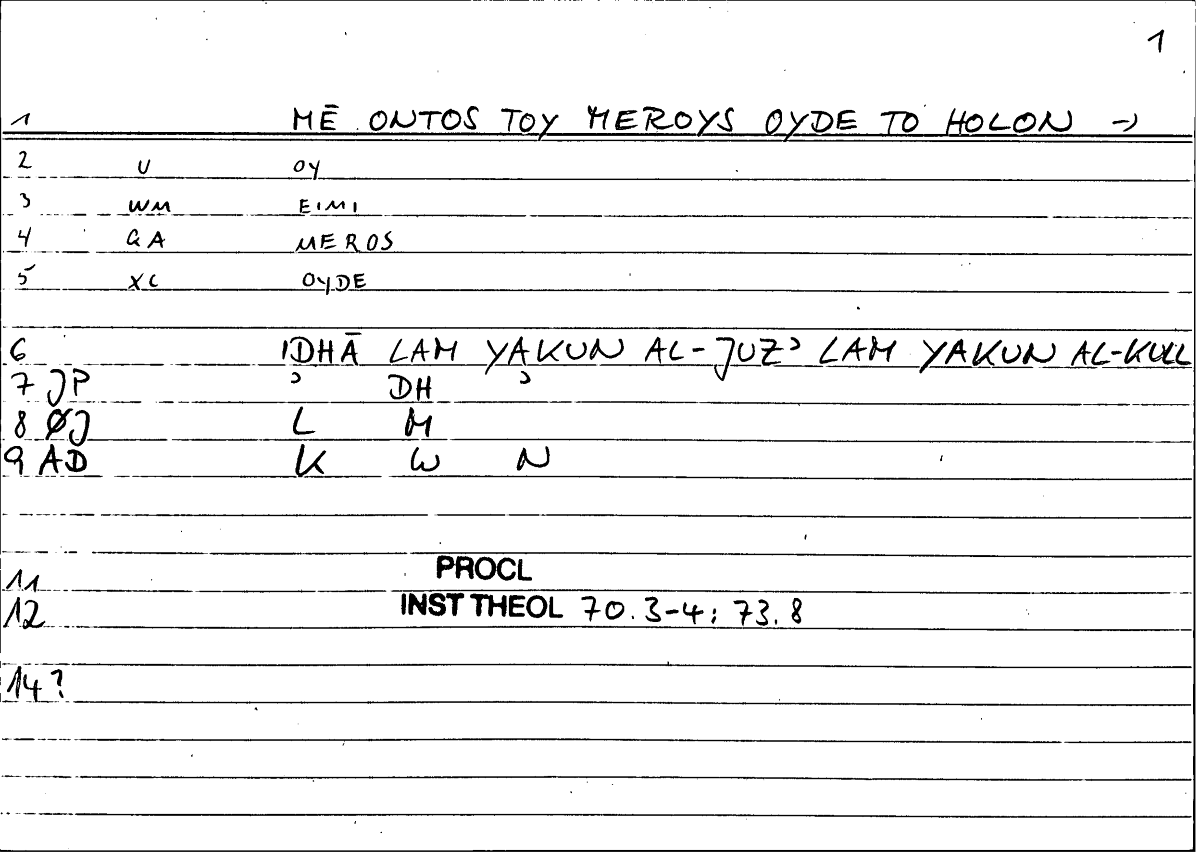 1
1 MĒ ONTOS TOY MEROYS OYDE TO HOLON →
2 U OY
3 WM EIMI
4 GA MEROS
5 XC OYDE
6 'IDHĀ LAM YAKUN AL-JUZʾ LAM YAKUN AL-KULL
7 JP ʾ DH ʾ
8 ØJ L M
9 AD K W N
11 PROCL
12 INST THEOL 70.3-4; 73.8
14?